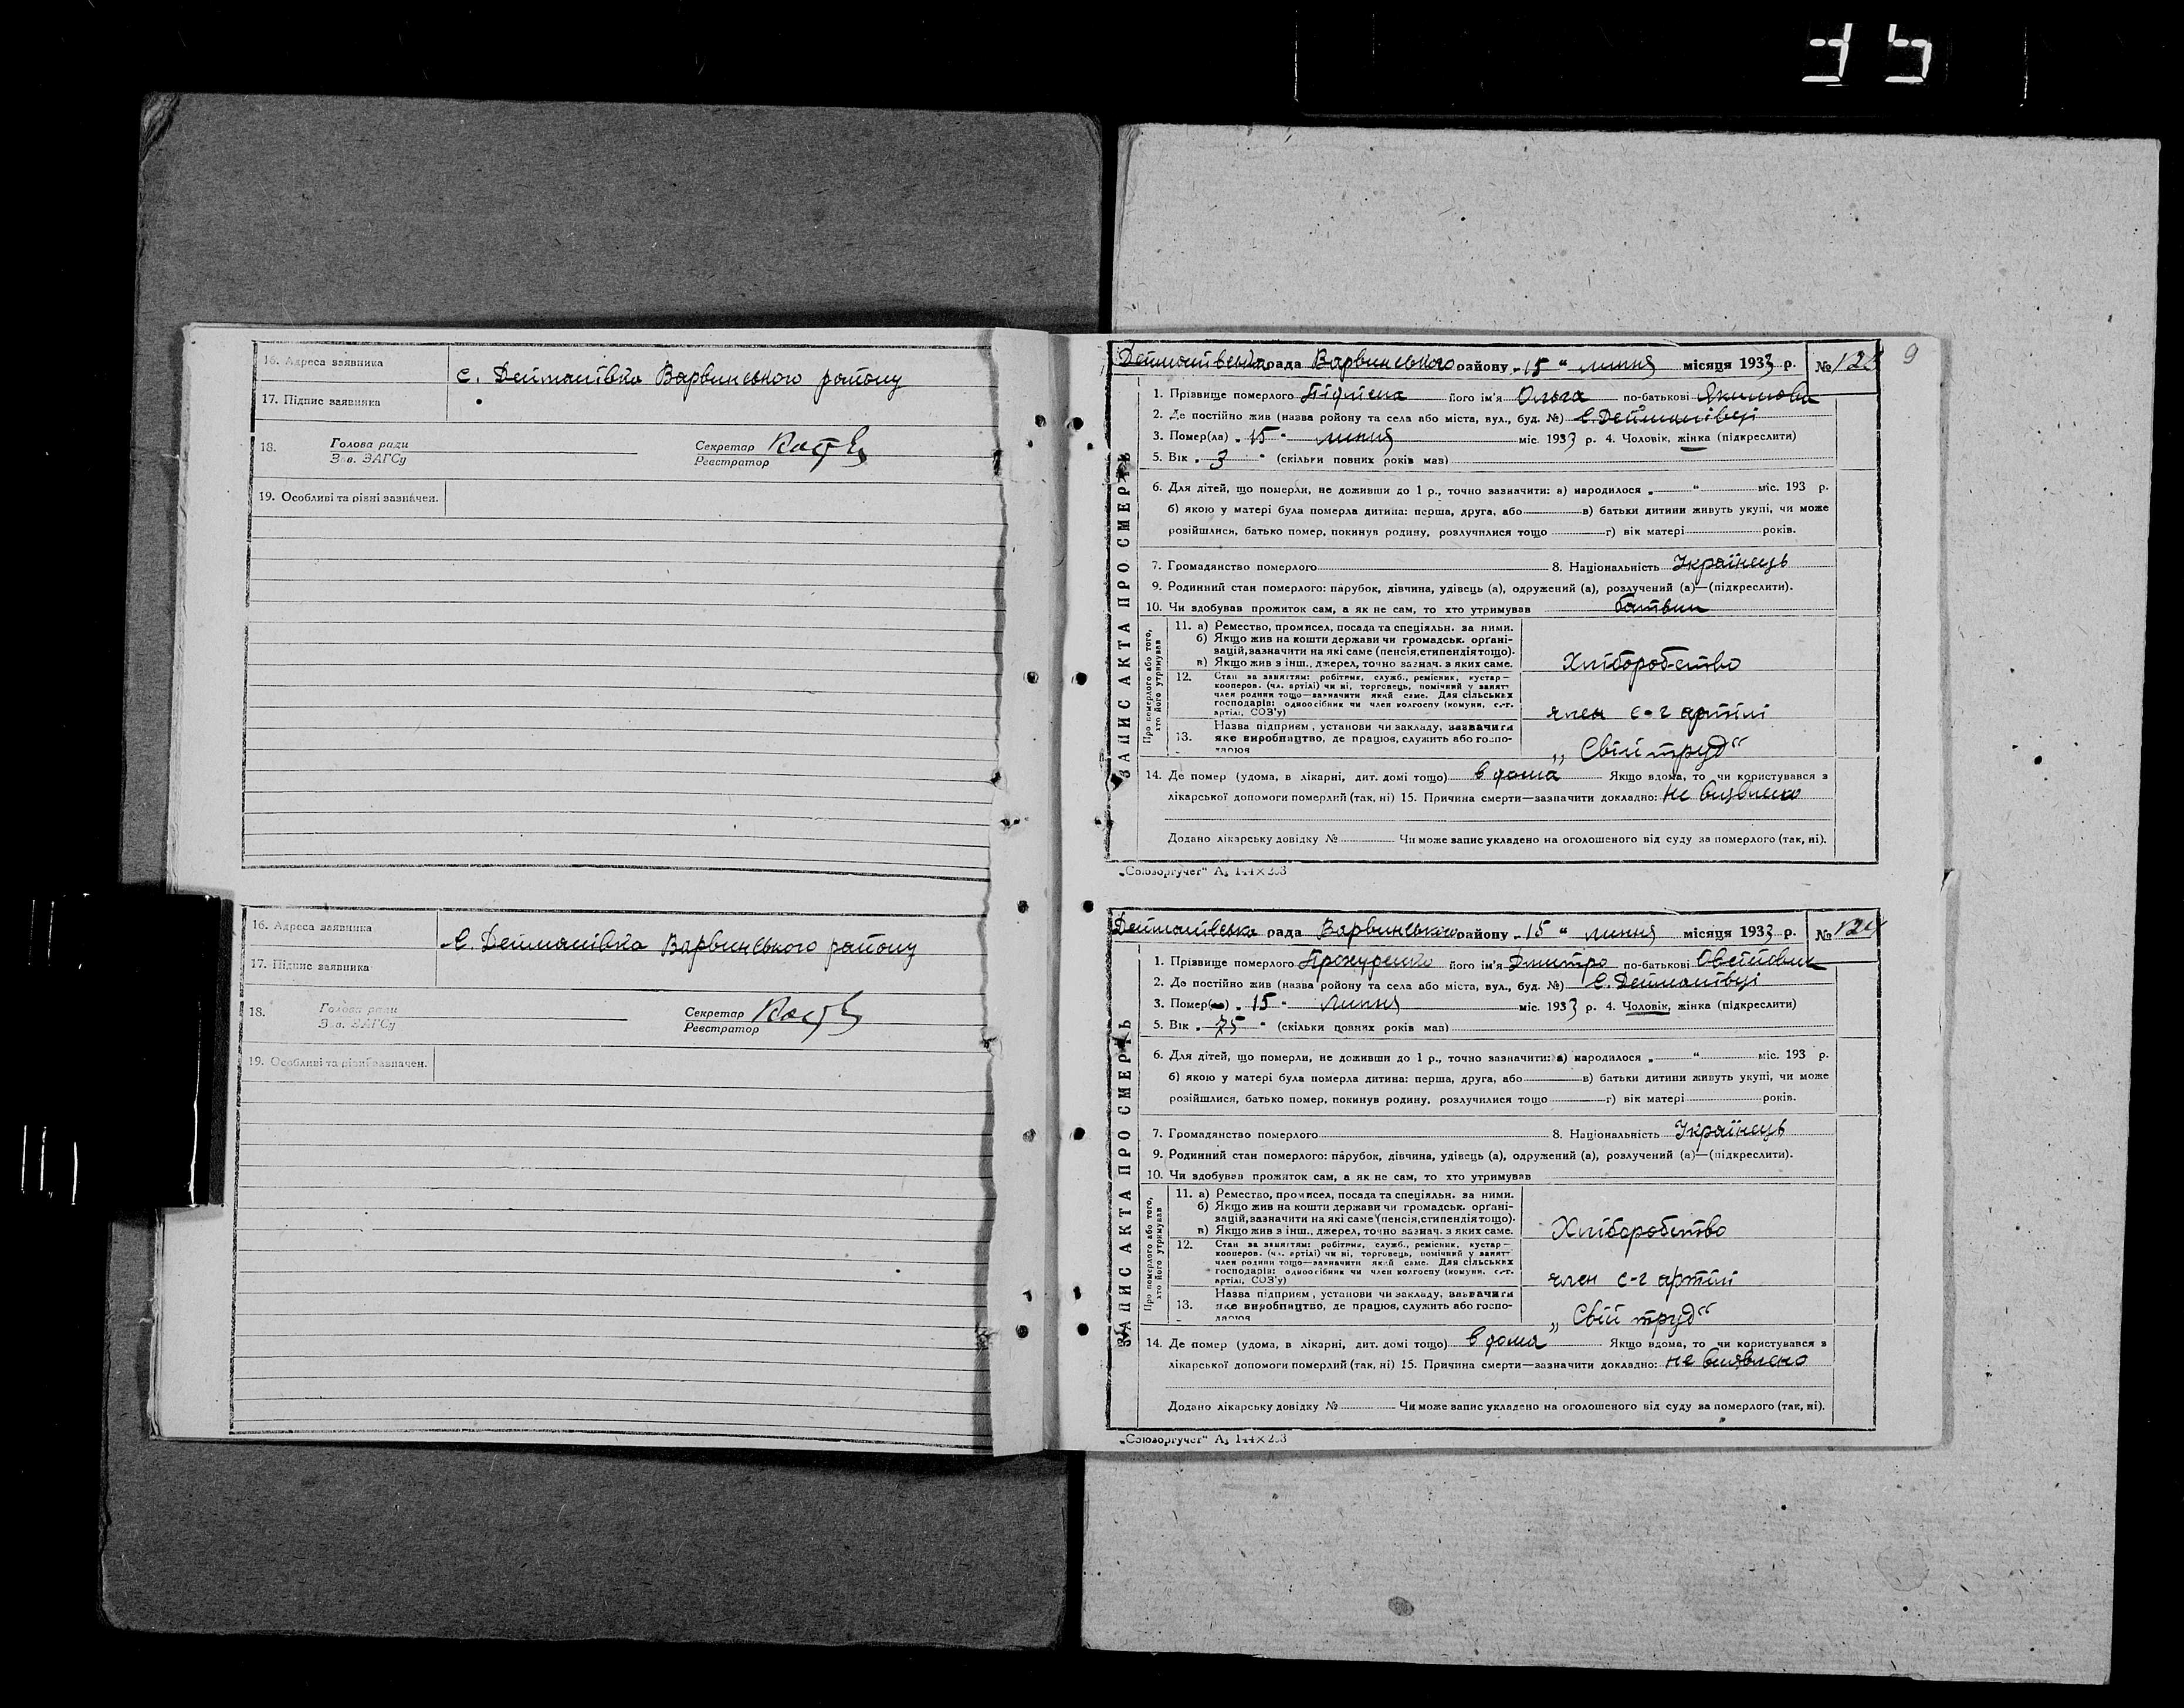 16. Адреса заявника
с. Дейманівка Варвинського району
17. Підпис заявника
18. Голова ради
Зав. ЗАГСу
Секретар
Реєстратор
19. Особливі та різні зазначен.
16. Адреса заявника
с. Дейманівка Варвинського району
17. Підпис заявника
18. Голова ради
Зав. ЗАГСу
Секретар
Реєстратор
19. Особливі та різні зазначен.
9
ЗАПИС АКТА ПРО СМЕРТЬ
Дейманівська рада Варвинського району „15“ липня місяця 1933 р. № 123
1. Прізвище померлого його ім'я Ольга по-батькові Якимовна
2. Де постійно жив (назва району та села або міста, вул., буд. №) с. Дейманівці
3. Помер(ла) „15“ липня міс. 1933 р. 4. Чоловік, жінка (підкреслити)
5. Вік „3“ (скільки повних років мав)
6. Для дітей, що померли, не доживши до 1 р., точно зазначити: а) народилося „ “ міс. 193 р.
б) якою у матері була померла дитина: перша, друга, або в) батьки дитини живуть укупі, чи може
розійшлися, батько помер, покинув родину, розлучилися тощо г) вік матері років.
7. Громадянство померлого 8. Національність Українець
9. Родинний стан померлого: парубок, дівчина, удівець (а), одружений (а), розлучений (а)—(підкреслити).
10. Чи здобував прожиток сам, а як не сам, то хто утримував батьки
Про померлого або того, хто його утримував
11. а) Ремество, промисел, посада та спеціяльн. за ними.
б) Якщо жив на кошти держави чи громадськ. організацій, зазначити на які саме (пенсія, стипендія тощо).
в) Якщо жив з інш. джерел, точно зазнач. з яких саме.
Хліборобство
12. Стан за заняттям: робітник, служб., ремісник, кустар—
кооперов. (чл. артілі) чи ні, торговець, помічний у занят.
член родини тощо—зазначити який саме. Для сільських
господарів: одноосібник чи член колгоспу (комуни, с.-г.
артілі, СОЗ'у)
член с-г артілі
13. Назва підприєм., установи чи закладу, зазначити
яке виробництво, де працює, служить або госпо-
дарює
„Свій труд“
14. Де помер (удома, в лікарні, дит. домі тощо) в дома Якщо вдома, то чи користувався з
лікарської допомоги померлий (так, ні) 15. Причина смерти—зазначити докладно: не виявлено
Додано лікарську довідку № Чи може запис укладено на оголошеного від суду за померлого (так, ні).
„Союзоргучет“ А₅ 144×203
ЗАПИС АКТА ПРО СМЕРТЬ
Дейманівська рада Варвинського району „15“ липня місяця 1933 р. № 124
1. Прізвище померлого його ім'я Дмитро по-батькові
2. Де постійно жив (назва району та села або міста, вул., буд. №) с. Дейманівці
3. Помер(ла) „15“ липня міс. 1933 р. 4. Чоловік, жінка (підкреслити)
5. Вік „75“ (скільки повних років мав)
6. Для дітей, що померли, не доживши до 1 р., точно зазначити: а) народилося „ “ міс. 193 р.
б) якою у матері була померла дитина: перша, друга, або в) батьки дитини живуть укупі, чи може
розійшлися, батько помер, покинув родину, розлучилися тощо г) вік матері років.
7. Громадянство померлого 8. Національність Українець
9. Родинний стан померлого: парубок, дівчина, удівець (а), одружений (а), розлучений (а)—(підкреслити).
10. Чи здобував прожиток сам, а як не сам, то хто утримував
Про померлого або того, хто його утримував
11. а) Ремество, промисел, посада та спеціяльн. за ними.
б) Якщо жив на кошти держави чи громадськ. організацій, зазначити на які саме (пенсія, стипендія тощо).
в) Якщо жив з інш. джерел, точно зазнач. з яких саме.
Хліборобство
12. Стан за заняттям: робітник, служб., ремісник, кустар—
кооперов. (чл. артілі) чи ні, торговець, помічний у занят.
член родини тощо—зазначити який саме. Для сільських
господарів: одноосібник чи член колгоспу (комуни, с.-г.
артілі, СОЗ'у)
член с-г артілі
13. Назва підприєм., установи чи закладу, зазначити
яке виробництво, де працює, служить або госпо-
дарює
„Свій труд“
14. Де помер (удома, в лікарні, дит. домі тощо) в дома Якщо вдома, то чи користувався з
лікарської допомоги померлий (так, ні) 15. Причина смерти—зазначити докладно: не виявлено
Додано лікарську довідку № Чи може запис укладено на оголошеного від суду за померлого (так, ні).
„Союзоргучет“ А₅ 144×203